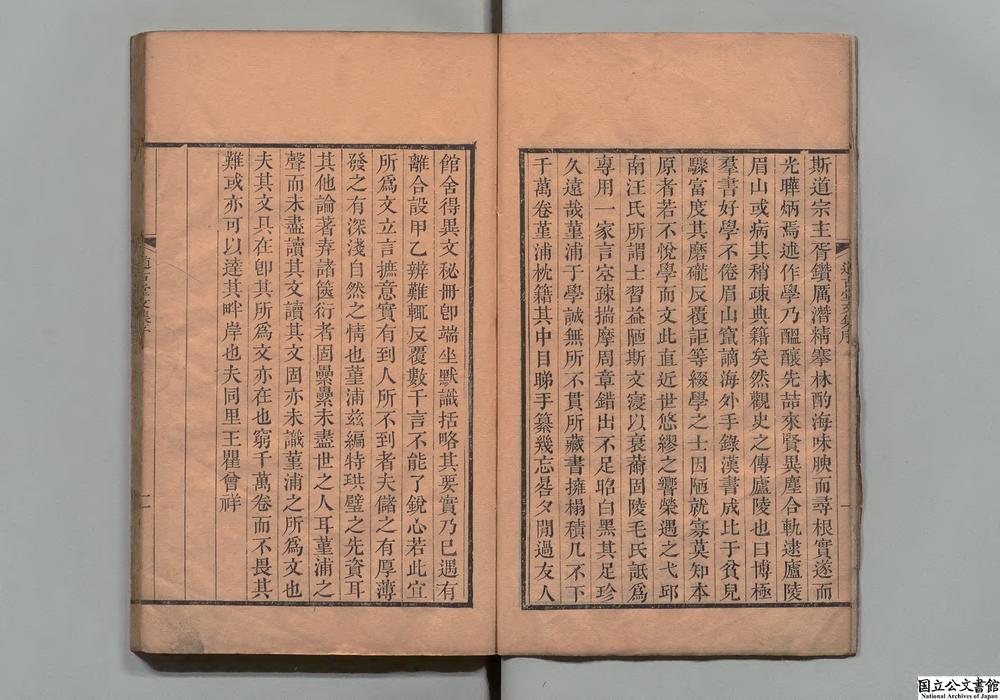 斯道宗主胥鑽厲潛精搴林酌海味腴而尋根實遂而
光曄炳焉述作學乃醞釀先喆來賢異塵合軌逮廬陵
眉山或病其稍疎典籍矣然觀史之傳廬陵也曰博極
羣書好學不倦眉山竄謫海外手錄漢書成比于貧兒
驟富度其磨礲反覆詎等綴學之士因陋就寡莫知本
原者若不悅學而文此直近世悠繆之響榮遇之弋邱
南汪氏所謂士習益陋斯文寖以衰薾固陵毛氏詆爲
專用一家言空疎揣摩周章錯出不足啗白黑其足珍
久遠哉堇浦于學誠無所不貫所藏書擁榻積几不下
千萬卷堇浦枕籍其中目睇手纂幾忘晷夕閒過友人
館舍得異文秘冊卽端坐默識括略其要實乃已遇有
離合設甲乙辨難輒反覆數千言不能了銳心若此宜
所爲文立言摭意實有到人所不到者夫儲之有厚薄
發之有深淺自然之情也堇浦茲編特珙璧之先資耳
其他論著弆諸篋衍者固纍纍未盡世之人耳堇浦之
聲而未盡讀其文讀其文固亦未識堇浦之所爲文也
夫其文具在卽其所爲文亦在也窮千萬卷而不畏其
難或亦可以達其畔岸也夫同里王瞿曾祥
二
国立公文書館
National Archives of Japan